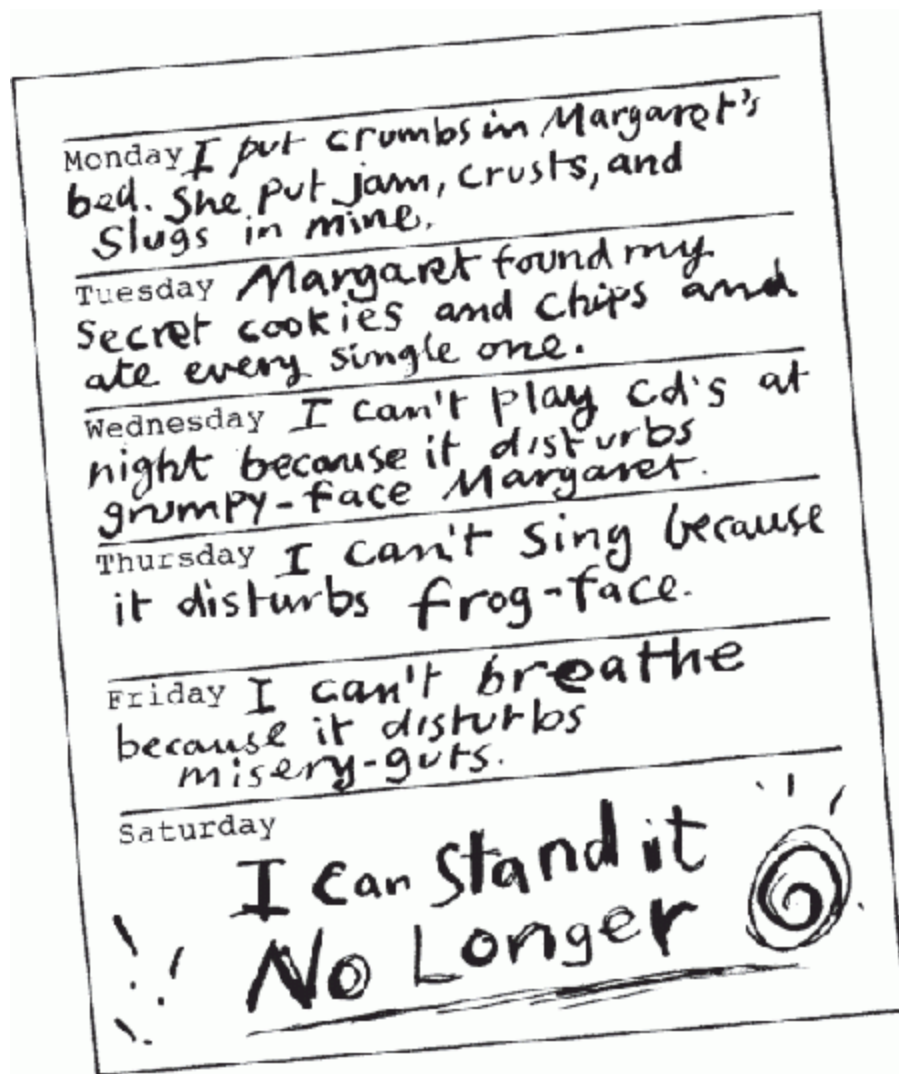 Monday I put crumbs in Margaret's
bed. She put jam, crusts, and
Slugs in mine.
Tuesday Margaret found my
secret cookies and chips and
ate every single one.
Wednesday I can't play cd's at
night because it disturbs
grumpy-face Margaret.
Thursday I can't sing because
it disturbs frog-face.
Friday I can't breathe
because it disturbs
misery-guts.
Saturday
I can stand it
No Longer